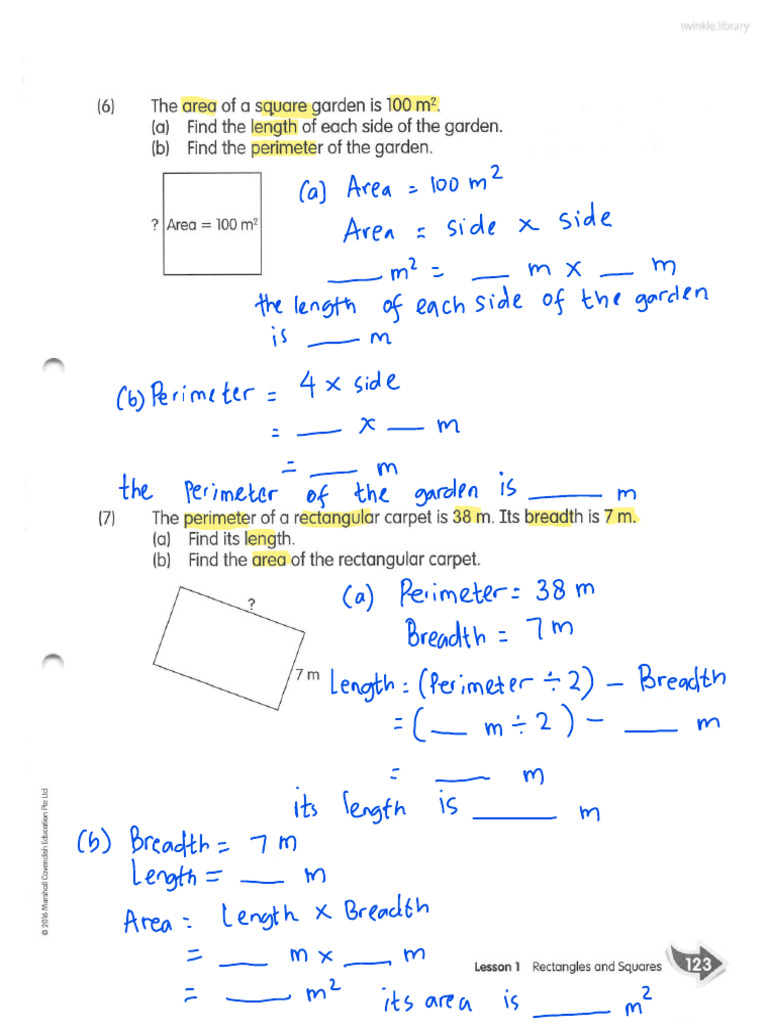 twinkle.library
(6) The area of a square garden is 100 m².
(a) Find the length of each side of the garden.
(b) Find the perimeter of the garden.
? Area = 100 m²
(a) Area = 100 m²
Area = side x side
____ m² = ___ m x ___ m
the length of each side of the garden
is ____ m
(b) Perimeter = 4 x side
= ____ x ___ m
= ____ m
the perimeter of the garden is ______ m
(7) The perimeter of a rectangular carpet is 38 m. Its breadth is 7 m.
(a) Find its length.
(b) Find the area of the rectangular carpet.
?
7 m
(a) Perimeter = 38 m
Breadth = 7 m
Length = (Perimeter ÷ 2) - Breadth
= (___ m ÷ 2) - ____ m
= ____ m
its length is ______ m
(b) Breadth = 7 m
Length = ___ m
Area = Length x Breadth
= ____ m x ____ m
= _____ m²
its area is ______ m²
© 2016 Marshall Cavendish Education Pte Ltd
Lesson 1 Rectangles and Squares 123